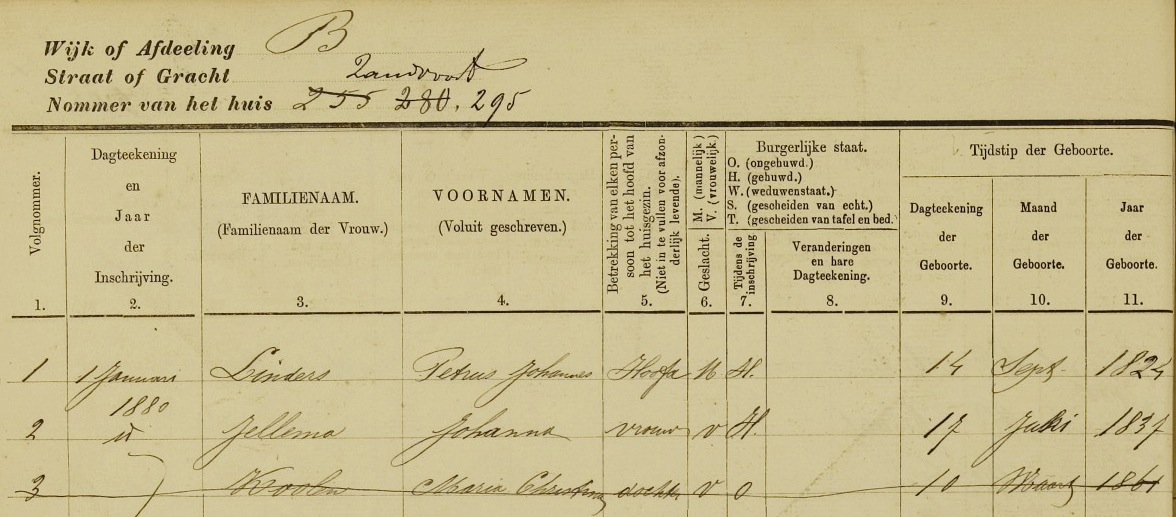 Wijk of Afdeeling B
Straat of Gracht Zandvoort
Nommer van het huis 255 280. 295
Volgnommer.
1.
Dagteekening
en
Jaar
der
Inschrijving.
2.
FAMILIENAAM.
(Familienaam der Vrouw.)
3.
VOORNAMEN.
(Voluit geschreven.)
4.
Betrekking van elken per-
soon tot het hoofd van
het huisgezin.
(Niet in te vullen voor afzon-
derlijk levende).
5.
M. (mannelijk)
V. (vrouwelijk.)
Geslacht.
6.
Burgerlijke staat.
O. (ongehuwd.)
H. (gehuwd.)
W. (weduwenstaat.)
S. (gescheiden van echt.)
T. (gescheiden van tafel en bed.)
Tijdens de
inschrijving
7.
Veranderingen
en hare
Dagteekening.
8.
Tijdstip der Geboorte.
Dagteekening
der
Geboorte.
9.
Maand
der
Geboorte.
10.
Jaar
der
Geboorte.
11.
1 1 Januari Linders Petrus Johannes Hoofd M H. 14 Sept. 1824
1880
2 Jellema Johanna vrouw v H. 17 Juli 1837
3 Koolen Maria Christina dochter v o 10 Maart 1861